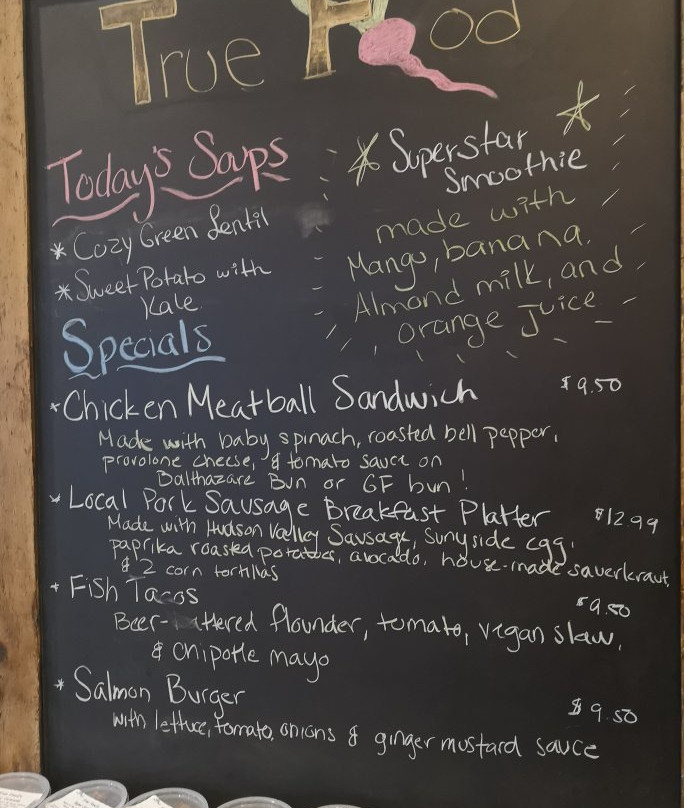 True Food
Today's Soups
* Cozy Green Lentil
* Sweet Potato with
Kale
Superstar
Smoothie
made with
Mango, banana,
Almond milk, and
orange juice
Specials
* Chicken Meatball Sandwich $9.50
Made with baby spinach, roasted bell pepper,
provolone cheese, & tomato sauce on
Balthazare Bun or GF bun!
* Local Pork Sausage Breakfast Platter $12.99
Made with Hudson Valley Sausage, sunyside egg,
paprika roasted potatoes, avocado, house-made sauerkraut,
& 2 corn tortillas
* Fish Tacos $9.50
Beer-battered flounder, tomato, vegan slaw,
& chipotle mayo
* Salmon Burger $9.50
with lettuce, tomato, onions & ginger mustard sauce